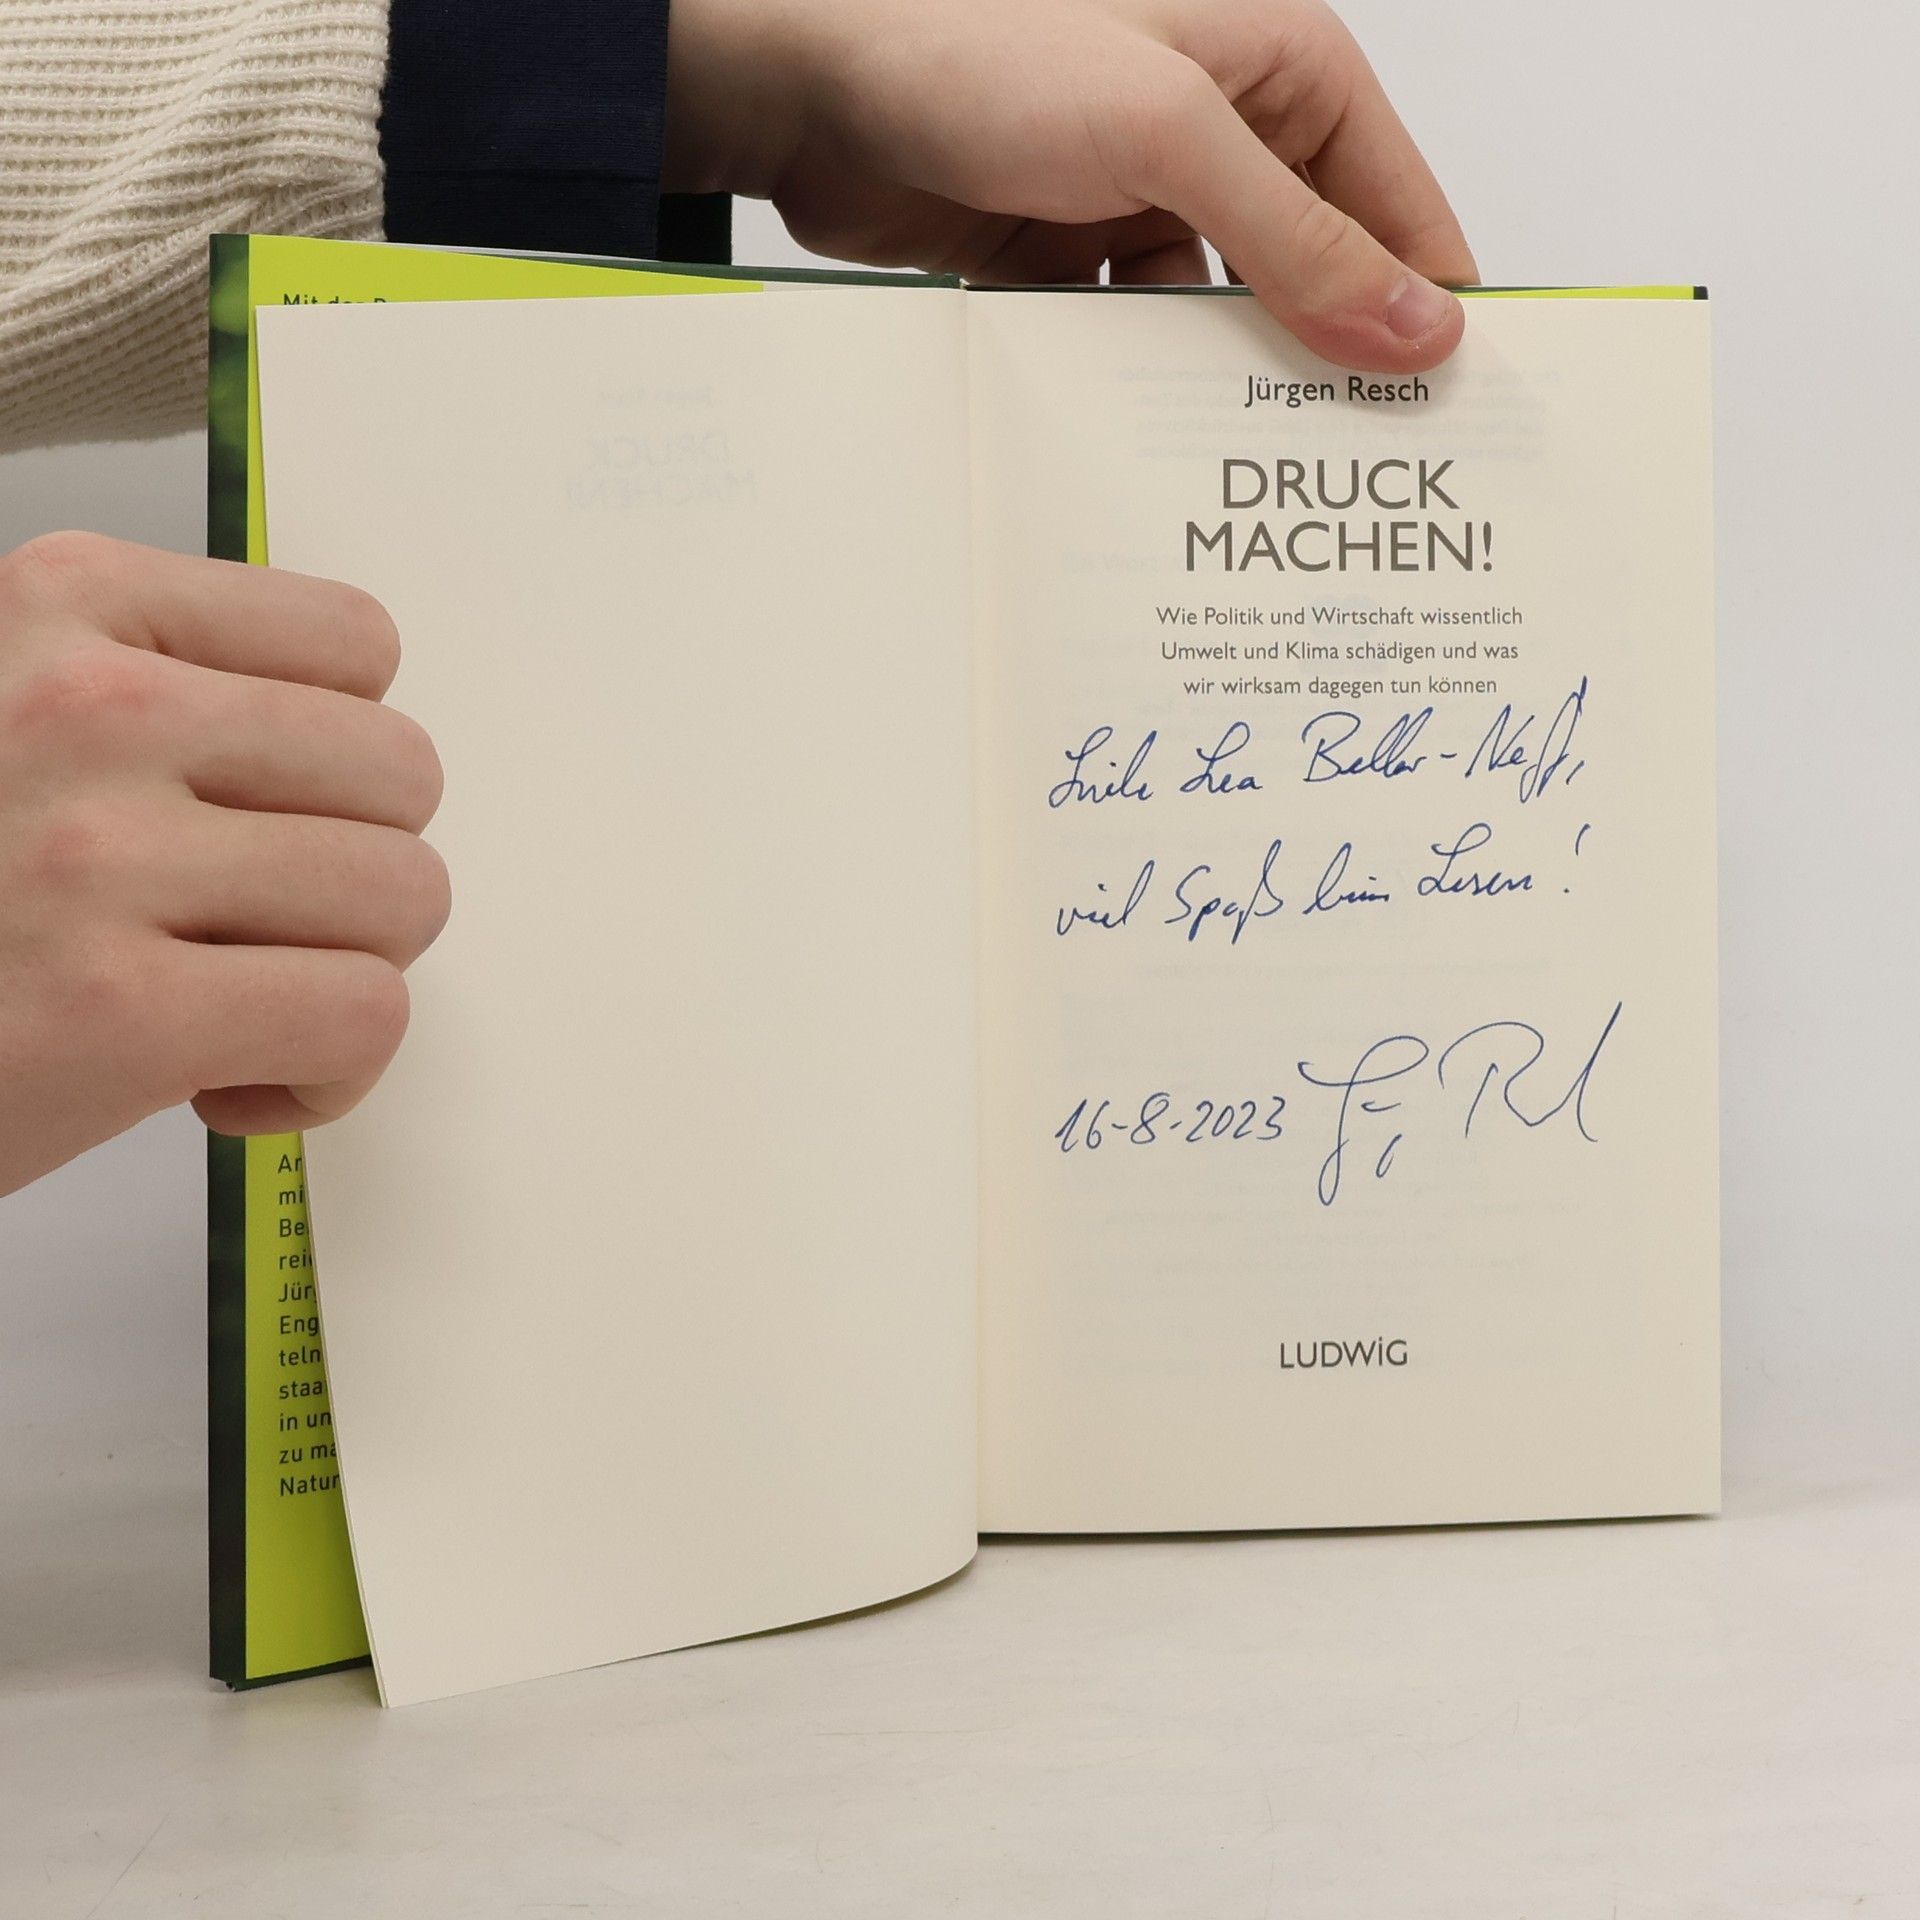 Mit der
Ar
mi
Be
rei
Jür
Eng
teln
staa
in un
zu ma
Natur
Jürgen Resch
DRUCK
MACHEN!
Wie Politik und Wirtschaft wissentlich
Umwelt und Klima schädigen und was
wir wirksam dagegen tun können
Liebe Lea Beller-Neff,
viel Spaß beim Lesen!
16-8-2023
LUDWiG